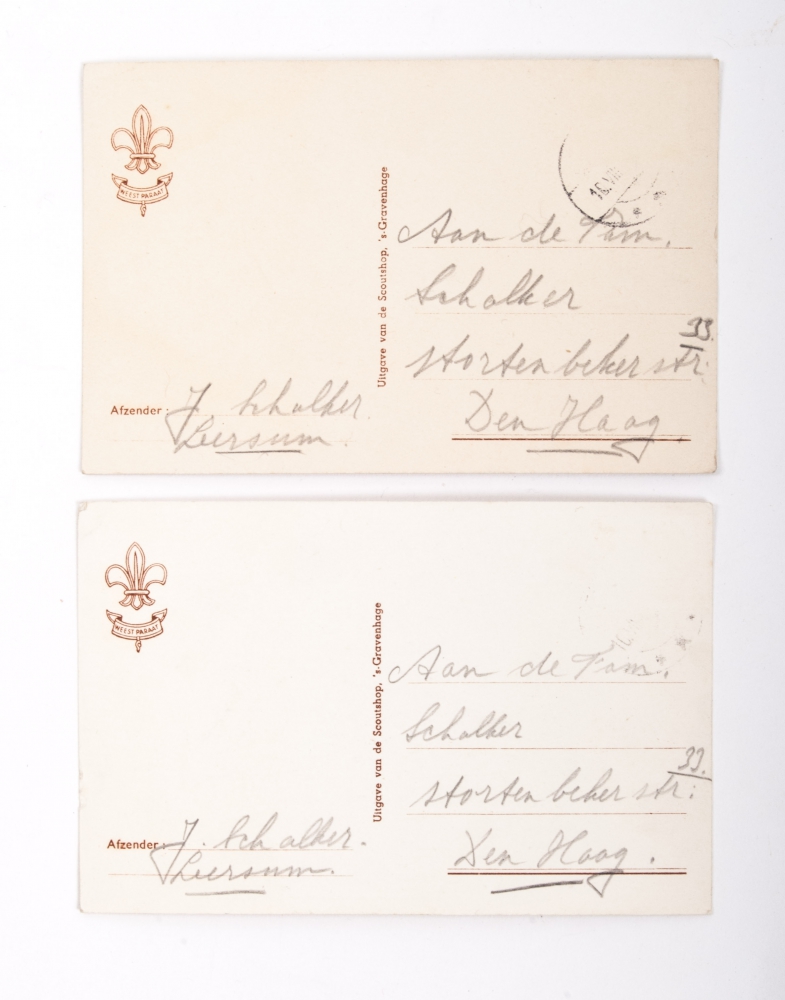 WEEST PARAAT
Uitgave van de Scoutshop, 's-Gravenhage
Aan de Fam.
Scholker
33.
Stortenbekerstr.
Den Haag.
Afzender: J. Scholker.
Leersum.
WEEST PARAAT
Uitgave van de Scoutshop, 's-Gravenhage
Aan de Fam.
Scholker
33.
Stortenbekerstr:
Den Haag.
Afzender: J. Scholker.
Leersum.